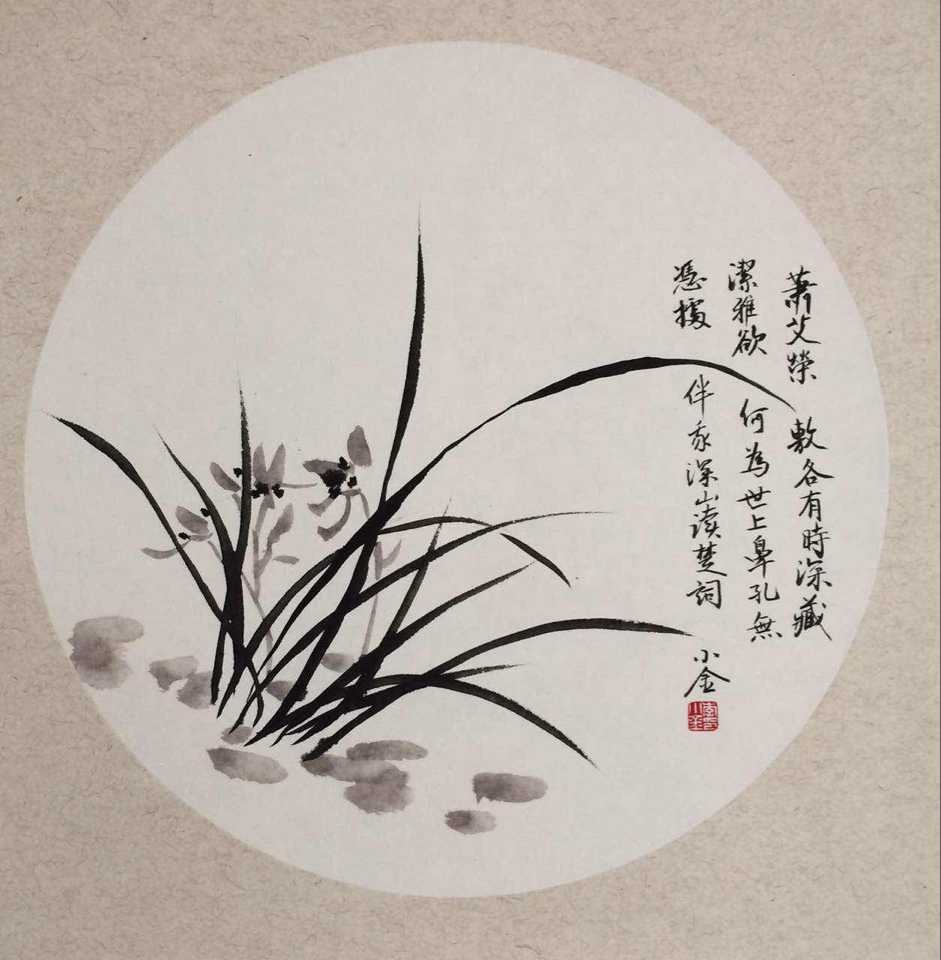 蕭艾榮敷各有時深藏
潔雅欲何為世上鼻孔無
憑據伴我深山读楚詞
小金